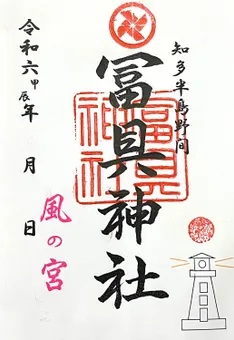 知多半島野間
冨具神社
冨具
神社
風の宮
令和六甲辰年 月 日